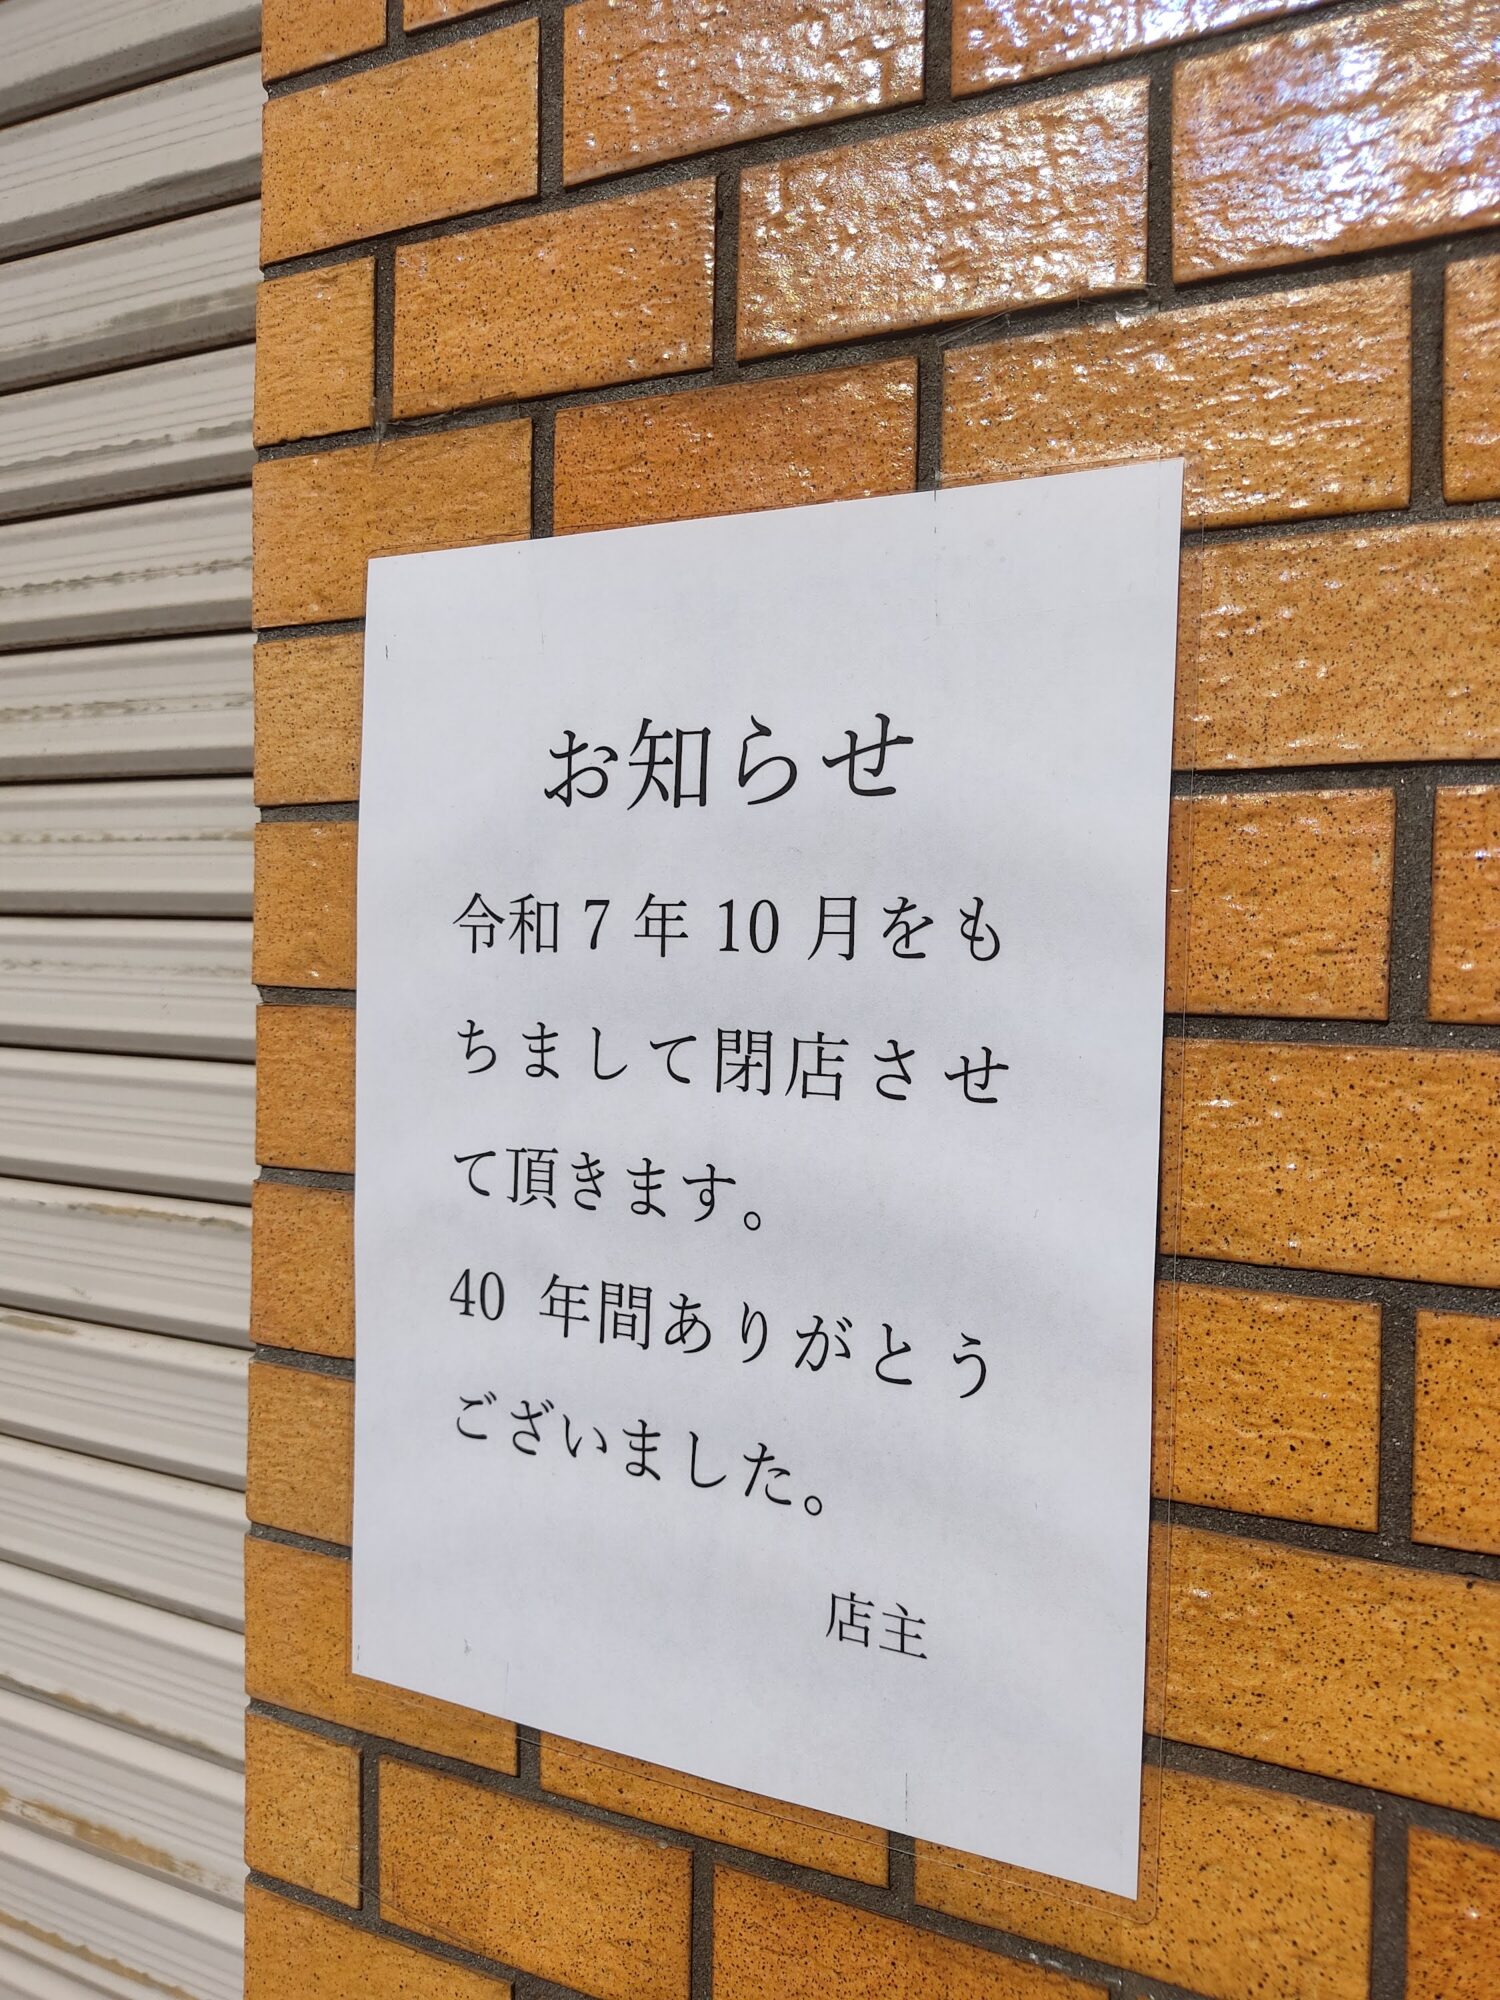 お知らせ
令和7年10月をも
ちまして閉店させ
て頂きます。
40年間ありがとう
ございました。
店主